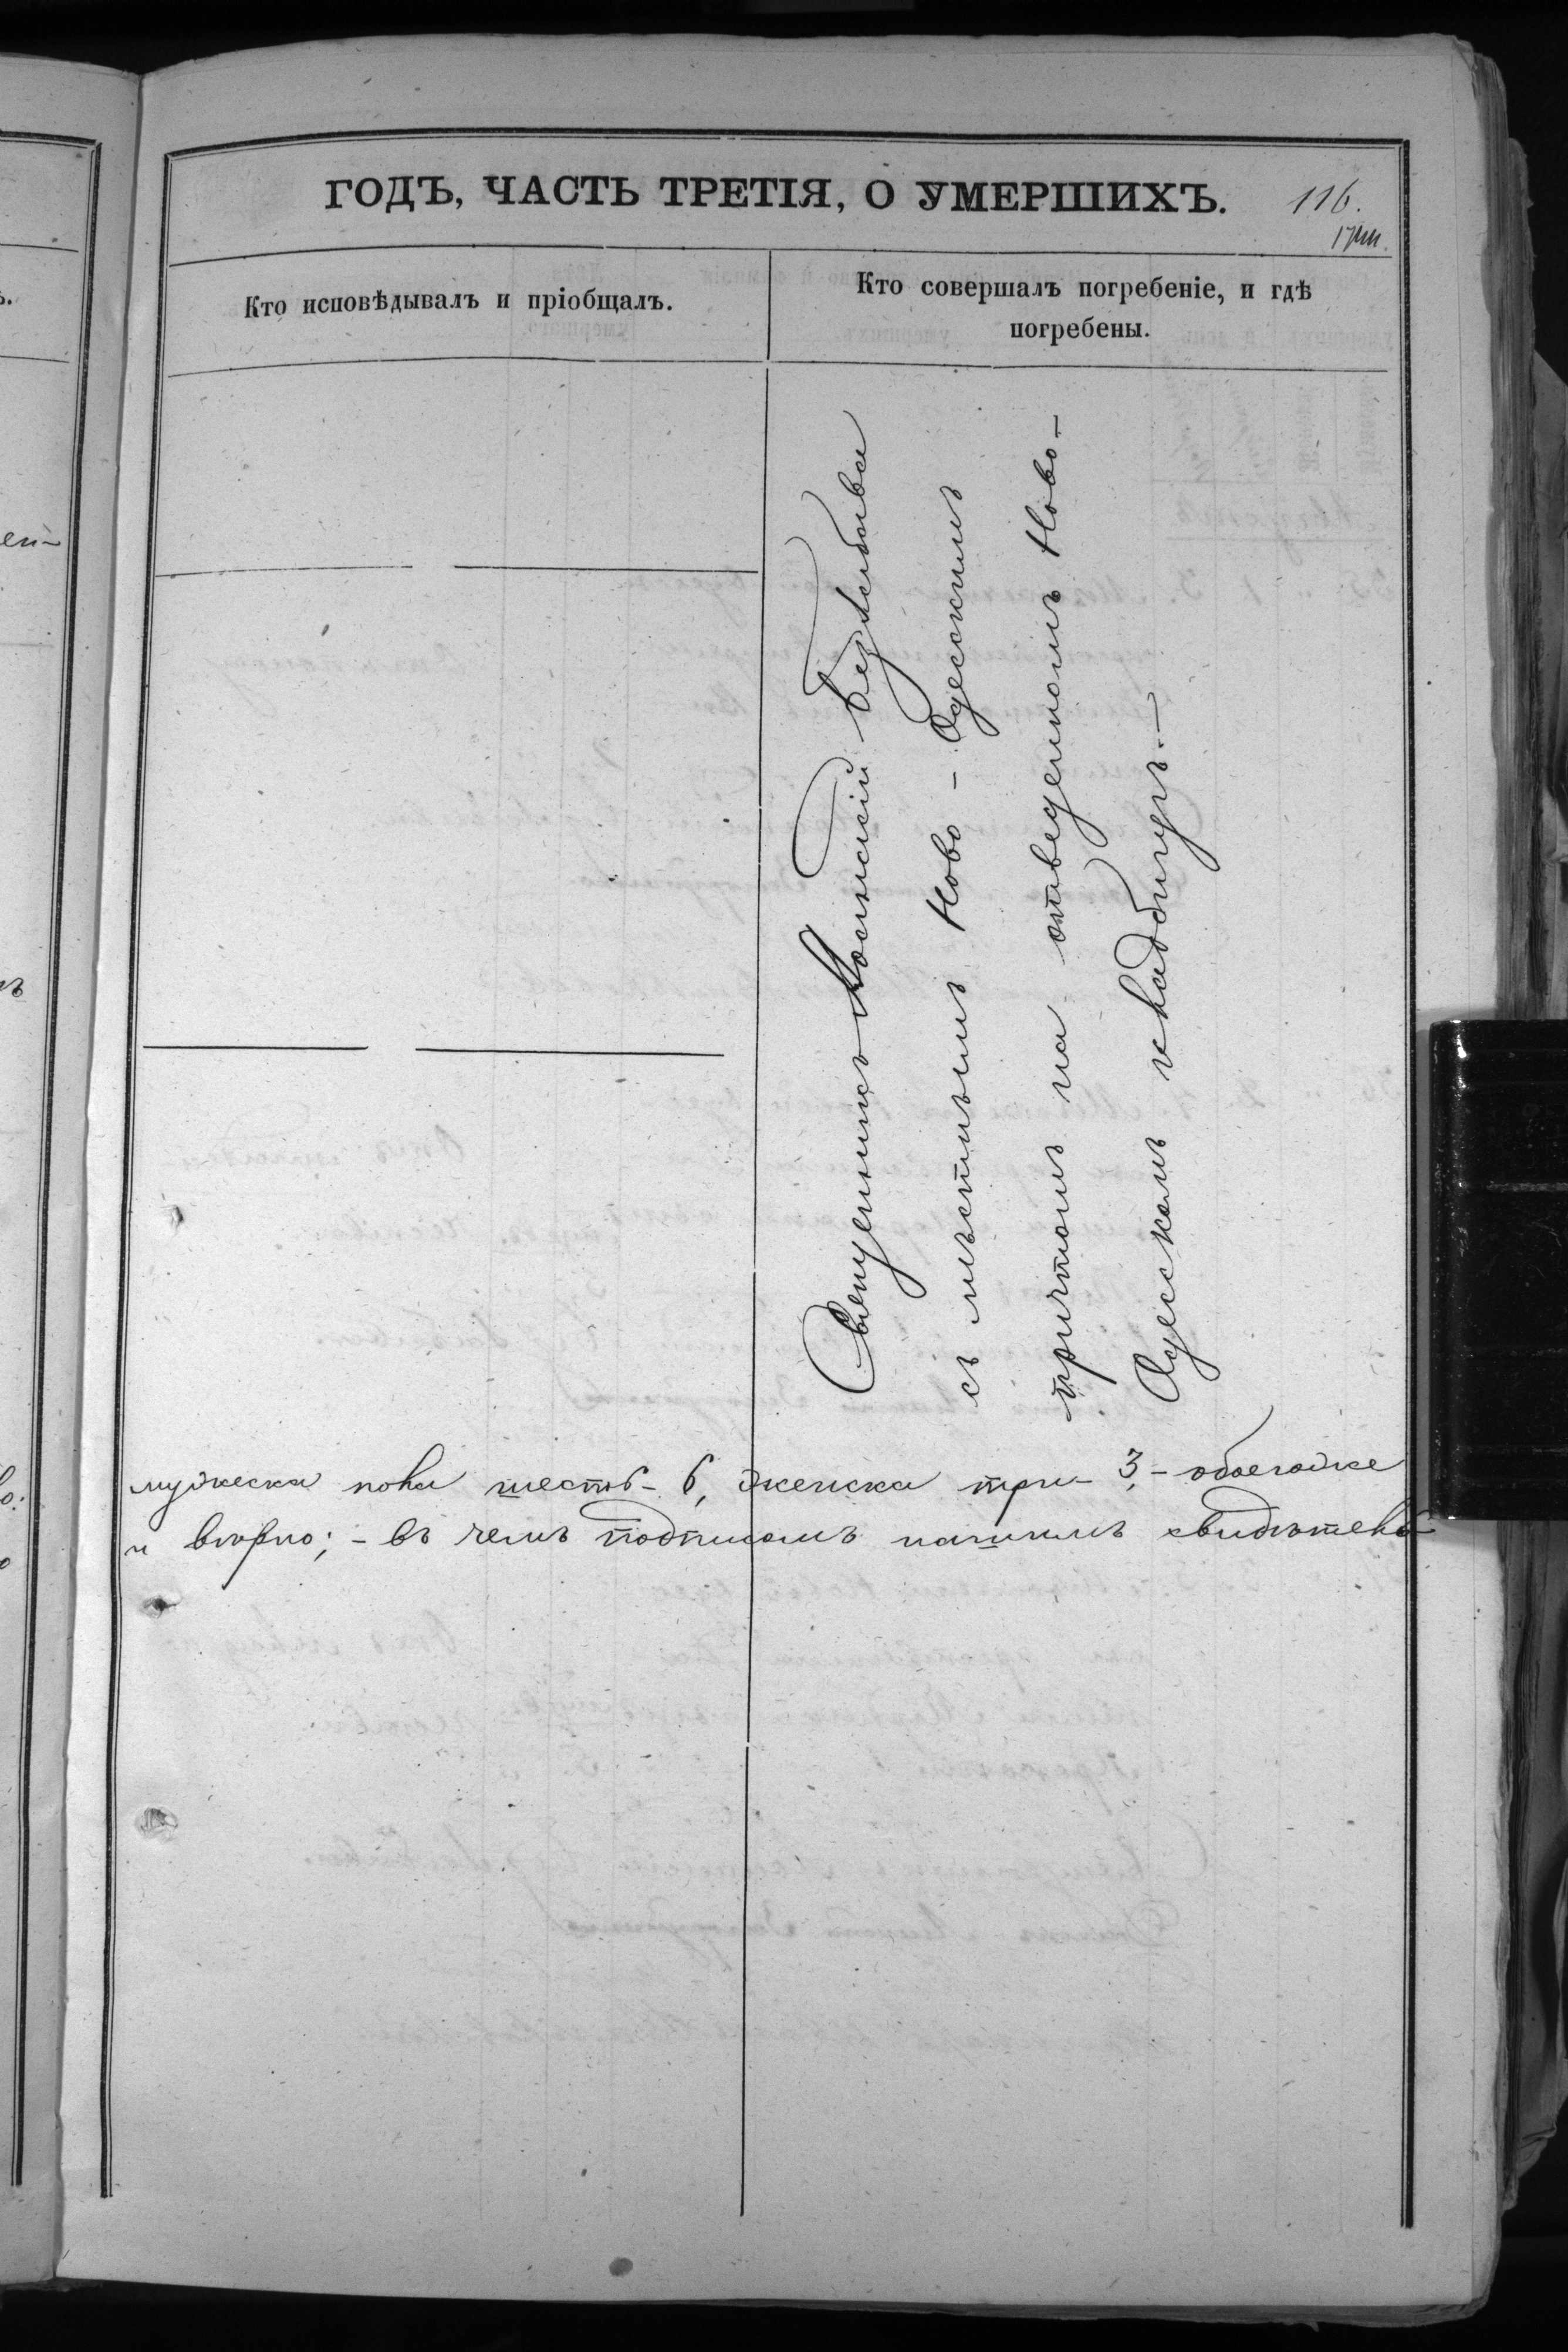 ГОДЪ, ЧАСТЬ ТРЕТІЯ, О УМЕРШИХЪ.
116.
Кто исповѣдывалъ и пріобщалъ.
Кто совершалъ погребеніе, и гдѣ
погребены.
Священникъ Іоанникій
съ мѣстнымъ Ново-Одесскимъ
причтомъ на отведенномъ Ново-
Одесскомъ кладбищѣ.—
мужеска пола шесть- 6, женска три- 3,- обоего
и вѣрно; - въ чемъ подписомъ нашимъ свидѣтель